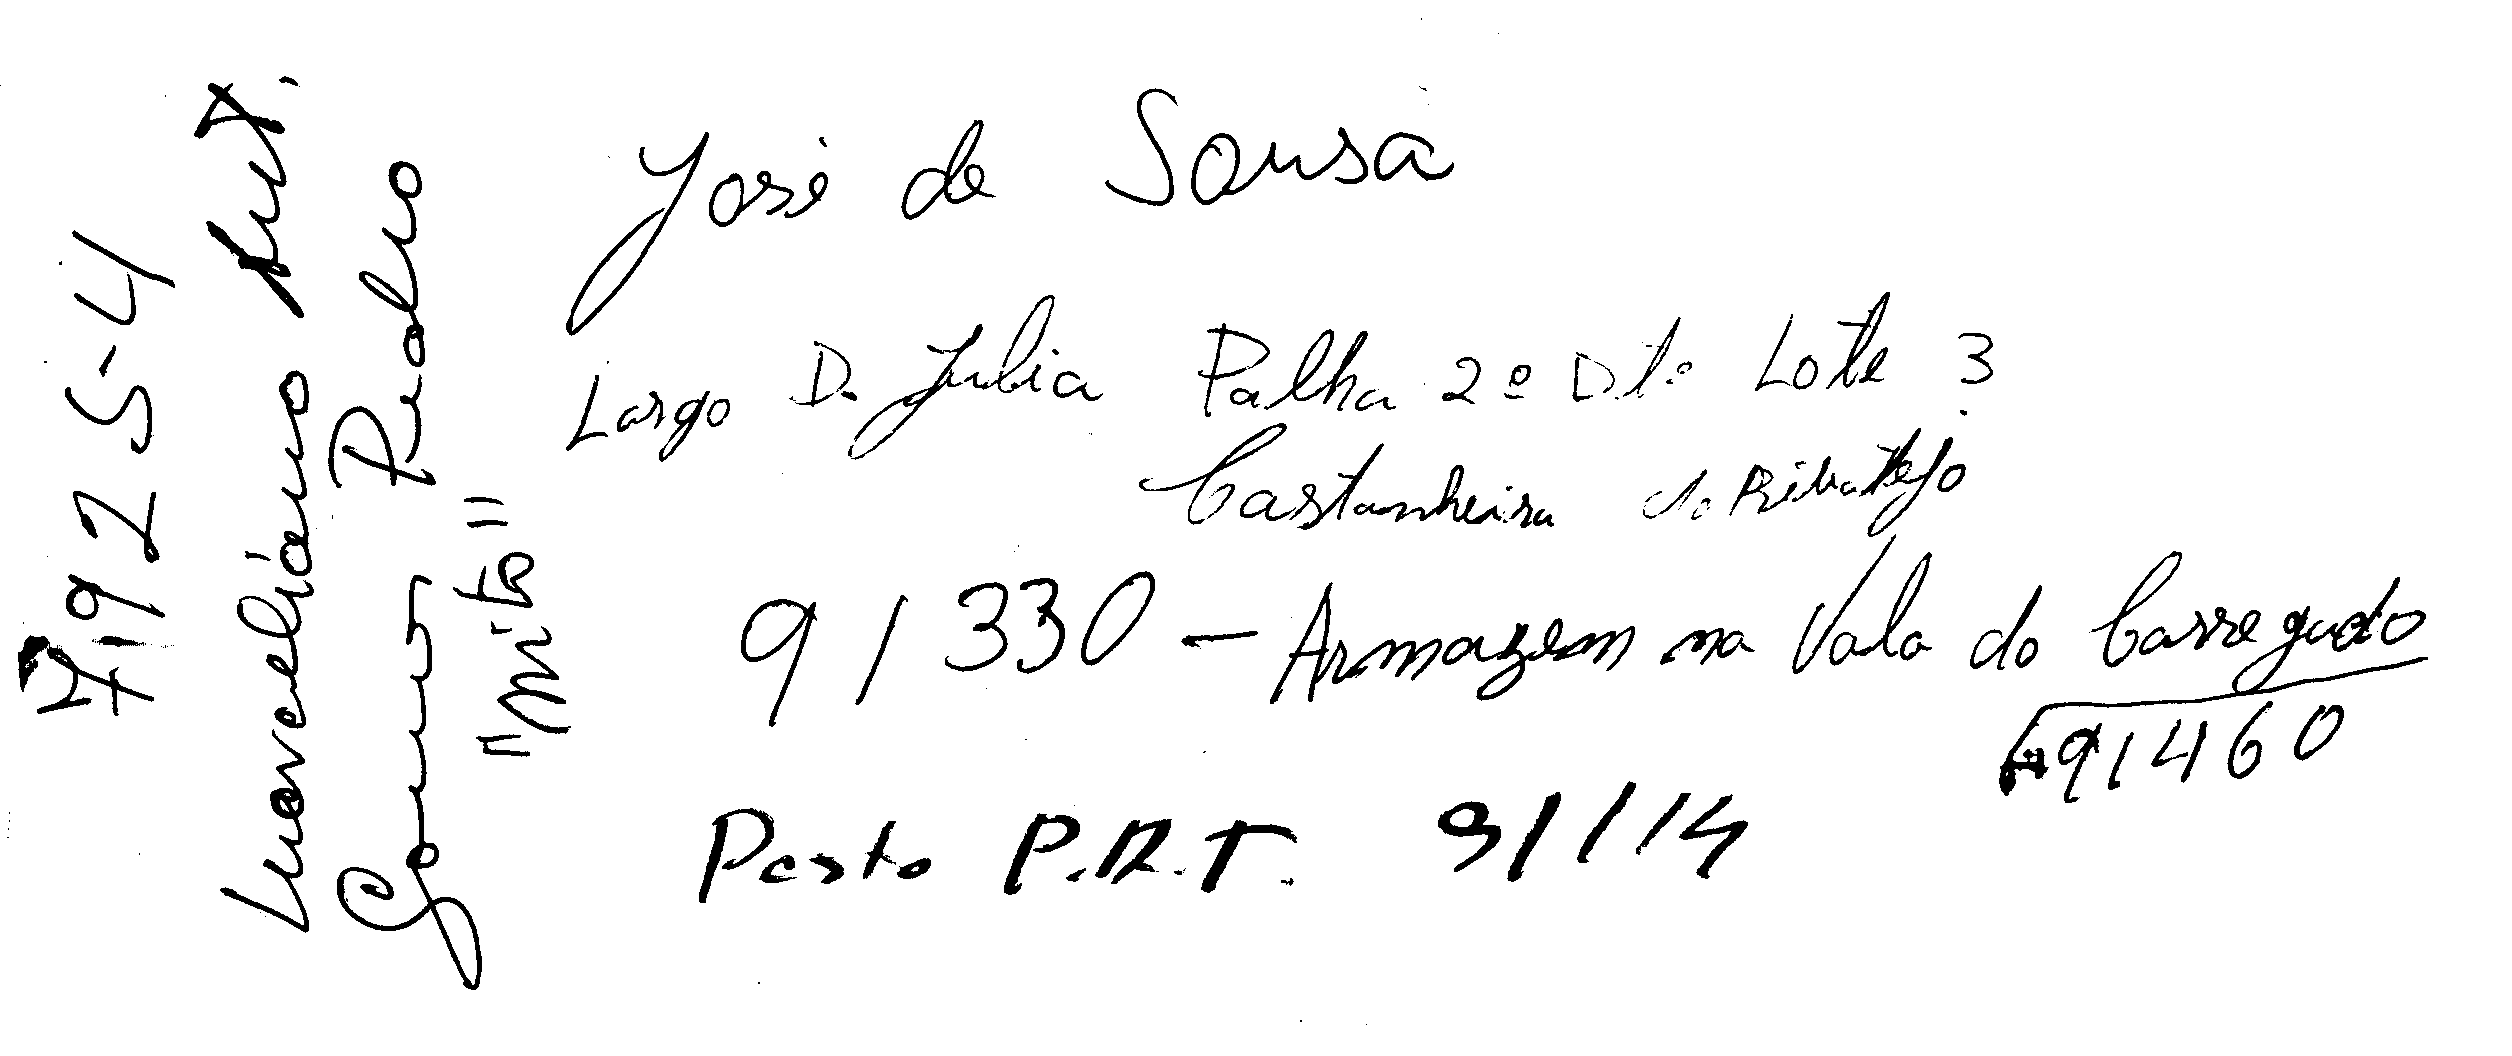 José de Sousa
Largo D. Julia Palha 2º Dtº Lote 3
Castanheira do Ribatejo
91330 - Armazem na Vala do Carregado
91460
Posto P.R.T. 91114
79254
Marceliano
Gomes Pedro
"Mito"